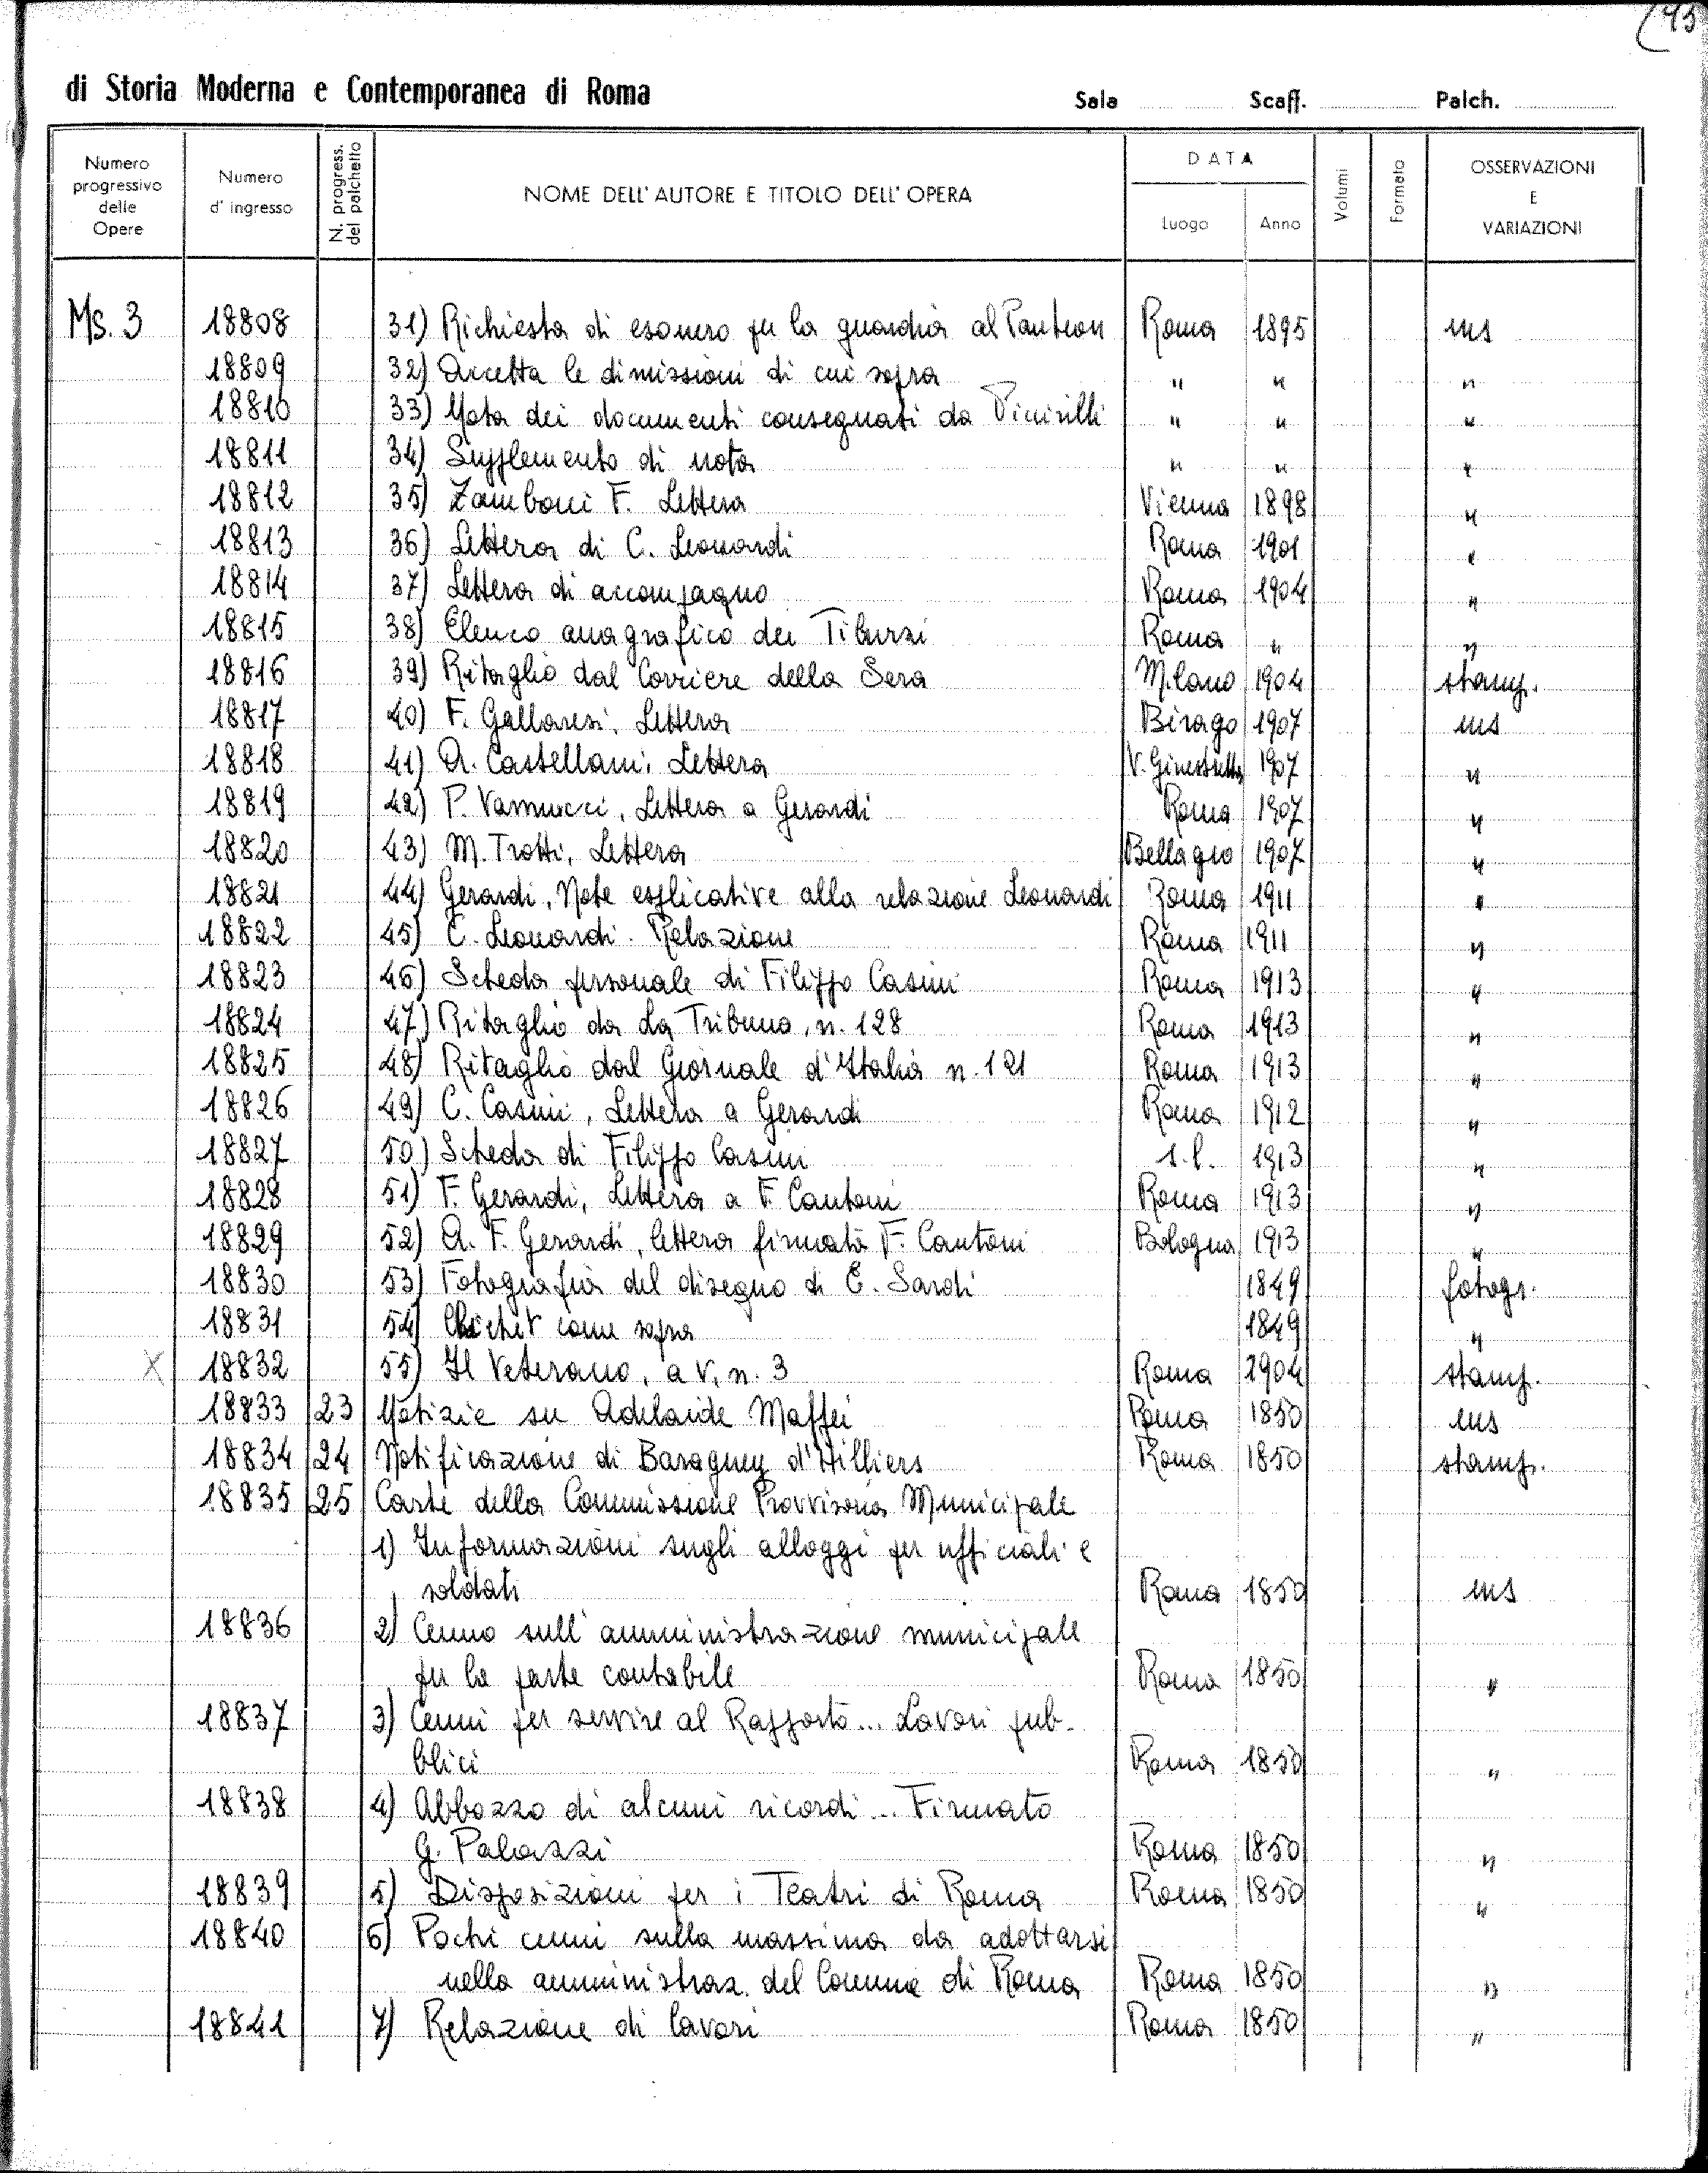 (45
di Storia Moderna e Contemporanea di Roma Sala Scaff. Palch.
Numero progressivo delle Opere
Numero d' ingresso
N. progress. del palchetto
NOME DELL' AUTORE E TITOLO DELL' OPERA
DATA
Luogo Anno
Volumi
Formato
OSSERVAZIONI E VARIAZIONI
Ms. 3 18808 31) Richiesta di esonero per la guardia al Panteon Roma 1895 ms
18809 32) Accetta le dimissioni di cui sopra " " "
18810 33) Nota dei documenti consegnati da " " "
18811 34) Supplemento di nota " " "
18812 35) Zamboni F. Lettera Vienna 1898 "
18813 36) Lettera di C. Leonardi Roma 1901 "
18814 37) Lettera di accompagno Roma 1904 "
18815 38) Elenco anagrafico dei Tiburzi Roma " "
18816 39) Ritaglio dal Corriere della Sera Milano 1904 stamp.
18817 40) F. Gallaresi, Lettera Birago 1907 ms
18818 41) A. Castellani, Lettera V. 1907 "
18819 42) P. Vannucci, Lettera a Gerardi Roma 1907 "
18820 43) M. Trotti, Lettera Bellagio 1907 "
18821 44) Gerardi, Note esplicative alla relazione Leonardi Roma 1911 "
18822 45) C. Leonardi. Relazione Roma 1911 "
18823 46) Scheda personale di Filippo Casini Roma 1913 "
18824 47) Ritaglio da La Tribuna, n. 128 Roma 1913 "
18825 48) Ritaglio dal Giornale d'Italia n. 121 Roma 1913 "
18826 49) C. Casini, Lettera a Gerardi Roma 1912 "
18827 50) Scheda di Filippo Casini s.l. 1913 "
18828 51) F. Gerardi, Lettera a F. Cantoni Roma 1913 "
18829 52) A. F. Gerardi, lettera firmata F. Cantoni Bologna 1913 "
18830 53) Fotografia del disegno di C. Sardi 1849 fotogr.
18831 54) Clichet come sopra 1849 "
X 18832 55) Il Veterano, a V, n. 3 Roma 1904 stamp.
18833 23 Notizie su Adelaide Maffei Roma 1850 ms
18834 24 Notificazione di Baraguey d'Hilliers Roma 1850 stamp.
18835 25 Carte della Commissione Provvisoria Municipale
1) Informazioni sugli alloggi per ufficiali e
soldati Roma 1850 ms
18836 2) Cenno sull'amministrazione municipale
per la parte contabile Roma 1850 "
18837 3) Cenni per servire al Rapporto... Lavori pub-
blici Roma 1850 "
18838 4) Abbozzo di alcuni ricordi... Firmato
G. Palazzi Roma 1850 "
18839 5) Disposizioni per i Teatri di Roma Roma 1850 "
18840 6) Pochi cenni sulla massima da adottarsi
nella amministraz. del Comune di Roma Roma 1850 "
18841 7) Relazione di lavori Roma 1850 "